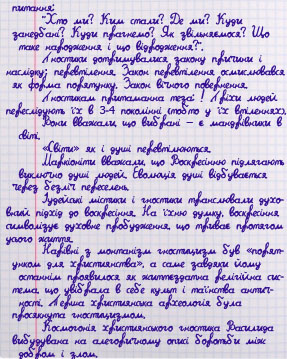 питання:
"Хто ми? Ким стали? Де ми? Куди
занедбані? Куди прагнемо? Як звільняємося? Що
таке народження і що відродження?".
Гностики дотримувалися закону причини і
наслідку; перевтілення. Закон перевтілення осмислювався
як форма порятунку. Закон вічного повернення.
Гностикам притаманна теза: ! Гріхи людей
переслідують їх в 3-4 поколінні (тобто у їх втіленнях).
Вони вважали, що вибрані – є мандрівники в
світі.
«Світи» як і душі перевтілюються.
Маркіоніти вважали, що Воскресінню підлягають
виключно душі людей. Еволюція душі відбувається
через безліч переселень.
Іудейські містики і гностики трактували духо-
вний підхід до воскресіння. На їхню думку, воскресіння
символізує духовне пробудження, що триває протягом
усього життя.
Нарівні з монатізм гностицизм був «поряту-
нком для християнства», а саме завдяки йому
останнім проявилося як життєздатна релігійна сис-
тема, що увібрала в себе культ і таїнства антич-
ності. Перша християнська археологія була
просякнута гностицизмом.
Космогонія християнського гностика Василида
вибудувана на алегоричному описі боротьби між
добром і злом.